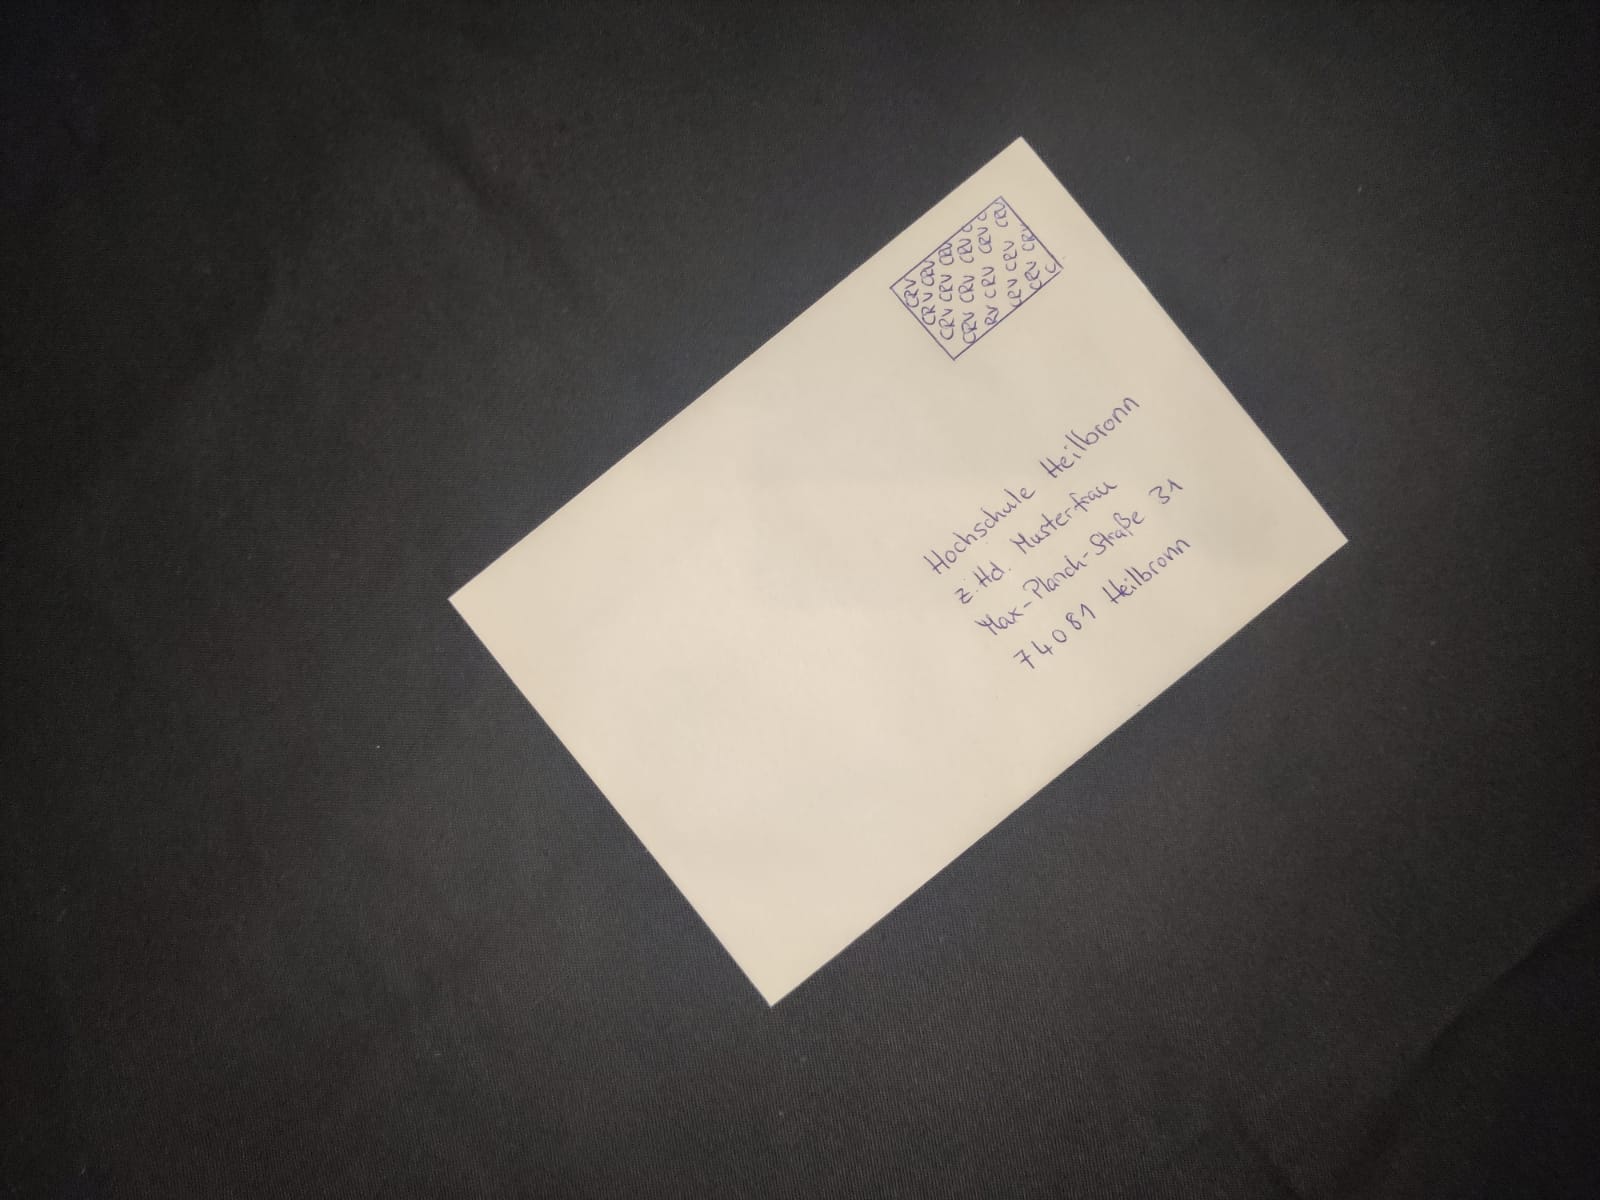 CRV
CRV CRV
CRV CRV CRV
CRV CRV CRV C
RV CRV CRV C
CRV CRV CRV
CRV CRV
C
Hochschule Heilbronn
z. Hd. Musterfrau
Max-Planck-Straße 31
74081 Heilbronn